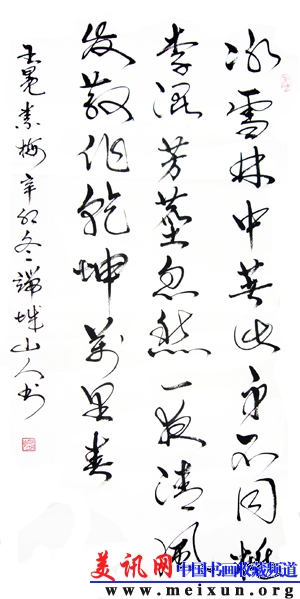 冰雪林中著此身不同桃
李混芳塵忽然一夜清風
发散作乾坤萬里春
王冕素梅 辛卯冬 端城山人书
美讯网 中国书画收藏频道
www.meixun.org